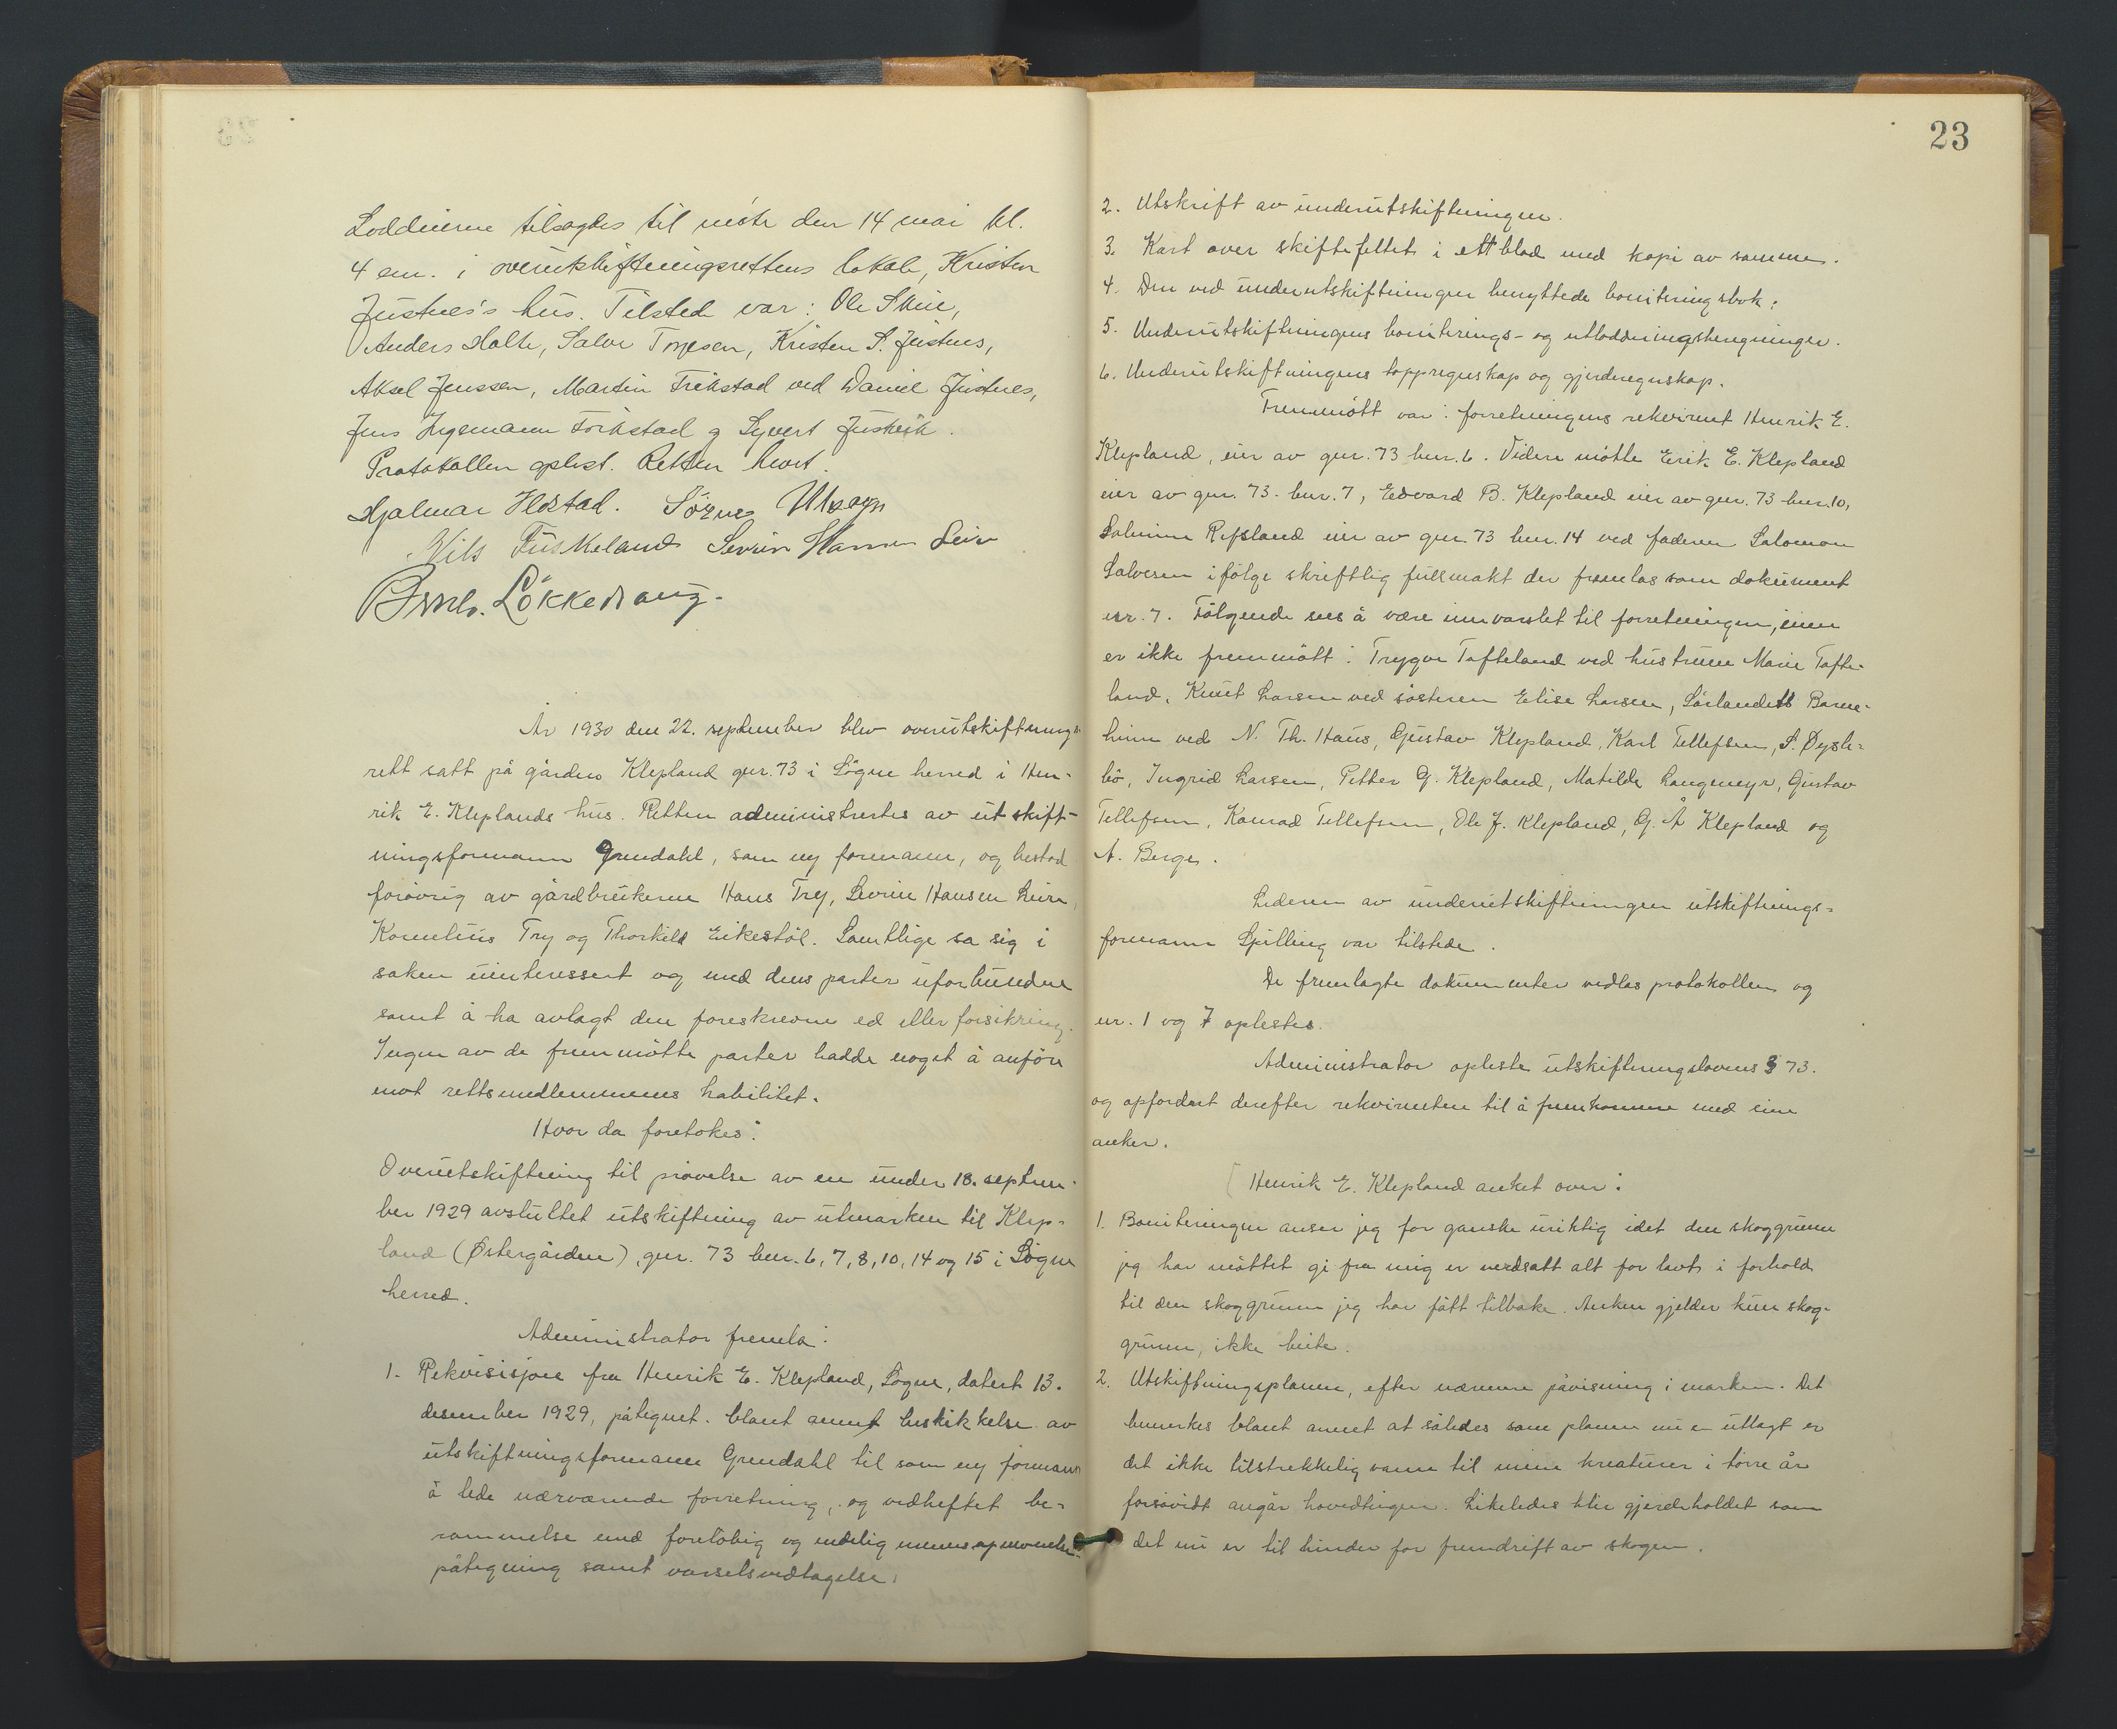 Loddeierne tilsagdes til møte den 14 mai kl.
4 em. i overutskiftningsrettens lokale, Kristen
Justnes's hus. Tilsted var: Ole
Anders Holte, Salve Torjesen, Kristen S. Justnes,
Aksel Jenssen, Martin Frikstad ved Daniel Justnes,
Jens Ingemann Frikstad og Syvert Justvik.
Protokollen oplest. Retten hevet.
Hjalmar Ilestad. Sørine Utsogn
Nils Fuskeland Severin Hansen Leire
Løkkevaug.
År 1930 den 22. september blev overutskiftnings-
rett satt på gården Klepland gnr. 73 i Søgne herred i Hen-
rik E. Kleplands hus. Retten administrertes av utskift-
ningsformann Grendahl, som ny formann, og bestod
forøvrig av gårdbrukerne Hans Try, Severin Hansen Leire,
Kornelius Try og Thorkild Eikestøl. Samtlige sa sig i
saken uinteressert og med dens parter uforbundne
samt å ha avlagt den foreskrevne ed eller forsikring.
Ingen av de fremmøtte parter hadde noget å anføre
mot rettsmedlemmenes habilitet.
Hvor da foretokes:
Overutskiftning til prøvelse av en under 18. septem-
ber 1929 avsluttet utskiftning av utmarken til Klep-
land (Østergården), gnr. 73 bnr. 6, 7, 8, 10, 14 og 15 i Søgne
herred.
Administrator fremla:
1. Rekvisisjon fra Henrik E. Klepland, Søgne, datert 13.
desember 1929, påtegnet blant annet beskikkelse av
utskiftningsformann Grendahl til som ny formann
å lede nærværende forretning, og vedheftet be-
rammelse med foreløbig og endelig mennesopnevnelse-
påtegning samt varselsvedtagelse.
23
2. Utskrift av underutskiftningen.
3. Kart over skiftefeltet i ett blad med kopi av samme.
4. Den ved underutskiftningen benyttede boniteringsbok.
5. Underutskiftningens boniterings- og utloddningsberegninger.
6. Underutskiftningens loppregnskap og gjerderegnskap.
Fremmøtt var: forretningens rekvirent Henrik E.
Klepland, eier av gnr. 73 bnr. 6. Videre møtte Erik E. Klepland
eier av gnr. 73. bnr. 7, Edvard B. Klepland eier av gnr. 73 bnr. 10,
Salmine Refsland eier av gnr. 73 bnr. 14 ved faderen Salomon
Salvesen ifølge skriftlig fullmakt der fremlas som dokument
nr. 7. Følgende sees å være innvarslet til forretningen, men
er ikke fremmøtt: Trygve Tofteland ved hustruen Marie Tofte-
land, Knut Larsen ved søsteren Elise Larsen, Sørlandets Barne-
hjem ved N. Th. Haus, Gustav Klepland, Karl Tellefsen, S. Øysle-
bø, Ingrid Larsen, Petter G. Klepland, Matilde Langemyr, Gustav
Tellefsen, Konrad Tellefsen, Ole J. Klepland, G. Å Klepland og
A. Berge.
Lederen av underutskiftningen utskiftnings-
formann Spilling var tilstede.
De fremlagte dokumenter vedlas protokollen og
nr. 1 og 7 oplestes.
Administrator opleste utskiftningslovens § 73.
og opfordret derefter rekvirenten til å fremkomme med sine
anker.
Henrik E. Klepland anket over:
1. Boniteringen anser jeg for ganske uriktig idet den skoggrunn
jeg har måttet gi fra mig er verdsatt alt for lavt i forhold
til den skoggrunn jeg har fått tilbake. Anken gjelder kun skog-
grunn, ikke beite.
2. Utskiftningsplanen, efter nærmere påvisning i marken. Det
bemerkes blant annet at således som planen nu er utlagt er
det ikke tilstrekkelig vann til mine kreaturer i tørre år
forsåvidt angår hovedteigen. Likeledes blir gjerdeholdet som
det nu er til hinder for fremdrift av skogen.